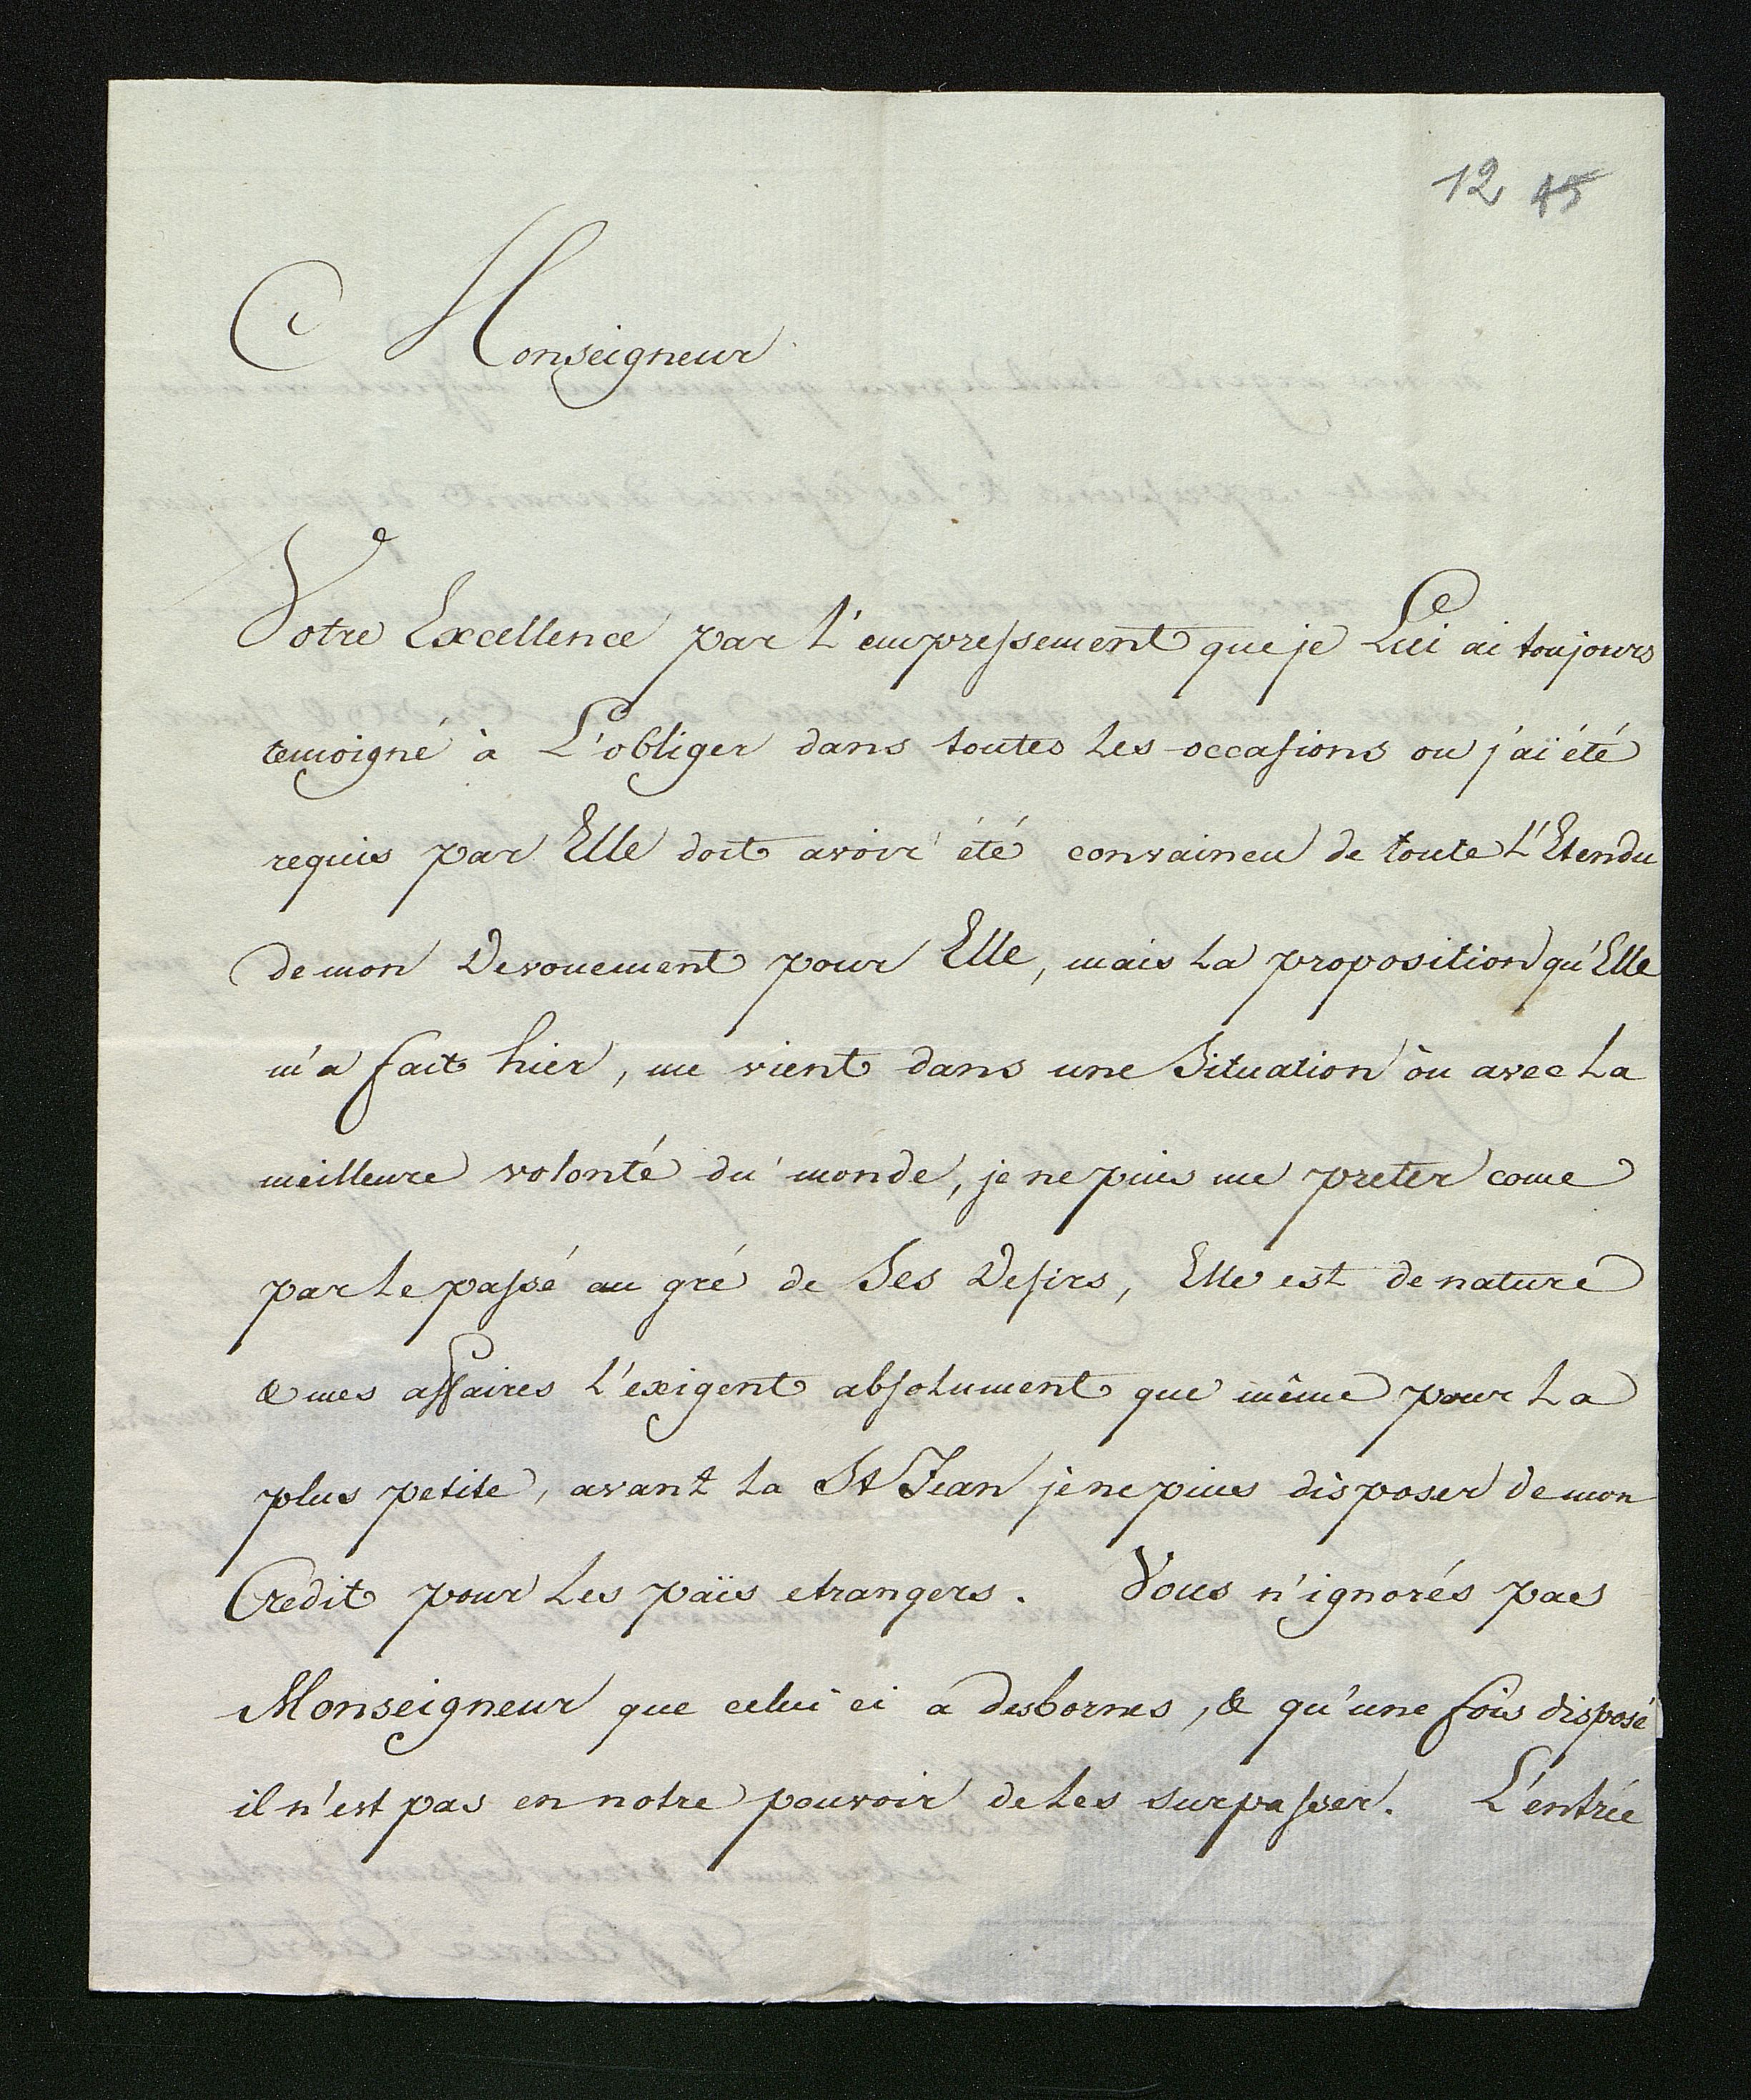 12 45
Monseigneur
Votre Excellence par L'empressement que je Lui ai toujours
temoigné à L'obliger dans toutes les occasions ou j'ai été
requis par Elle doit avoir été convaincu de toute L'Etendu
de mon Devouement pour Elle, mais la proposition qu'Elle
m'a fait hier, me vient dans une Situation ou avec la
meilleure volonté du monde, je ne puis me preter come
par le passé au gré de Ses Desirs, Elle est de nature
& mes affaires l'exigent absolument que même pour la
plus petite, avant la St Jean je ne puis disposer de mon
Credit pour les païs etrangers. Vous n'ignorés pas
Monseigneur que celui ci a des bornes, & qu'une fois disposé
il n'est pas en notre pouvoir de les surpasser. L'entrée